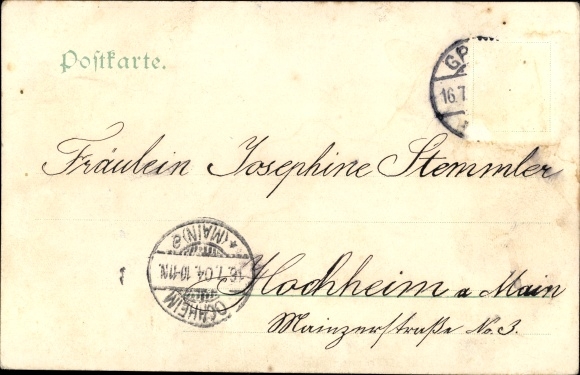 Postkarte.
16.7
Fräulein Josephine Stemmler
(MAIN) a
16.7.04. 10-11N.
Hochheim a Main
Mainzerstraße No. 3.